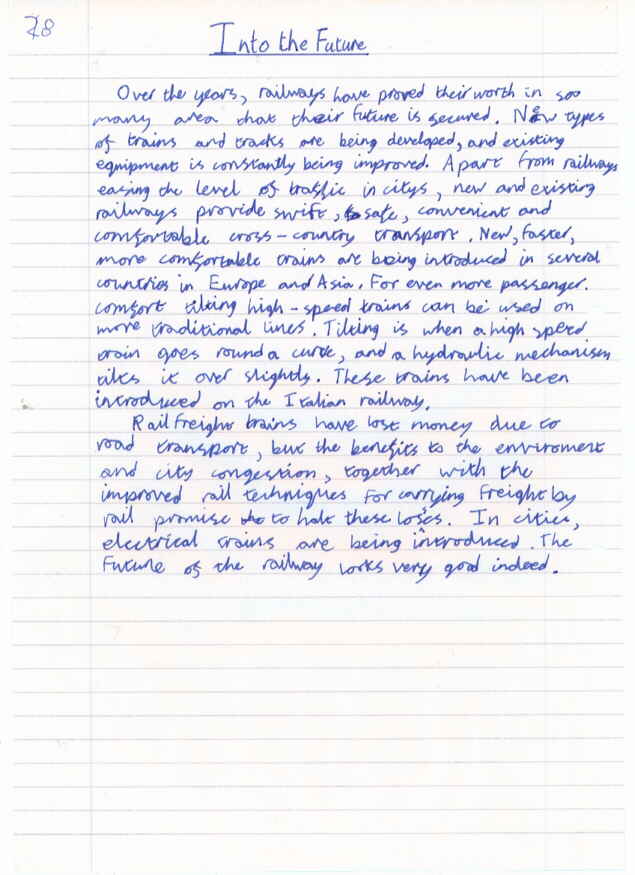 28
Into the Future
Over the years, railways have proved their worth in soo
many area that their future is secured. New types
of trains and tracks are being developed, and existing
equipment is constantly being improved. Apart from railways
easing the level of traffic in citys, new and existing
railways provide swift, safe, convenient and
comfortable cross-country transport. New, faster,
more comfortable trains are being introduced in several
countries in Europe and Asia. For even more passenger.
comfort tilting high-speed trains can be used on
more traditional lines. Tilting is when a high speed
train goes round a curve, and a hydraulic mechanism
tilts it over slightly. These trains have been
introduced on the Italian railway.
Rail freight trains have lost money due to
road transport, but the benefits to the enviroment
and city congestion, together with the
improved rail techniques for carrying freight by
rail promise to halt these losses. In cities,
electrical trains are being introduced. The
Future of the railway looks very good indeed.